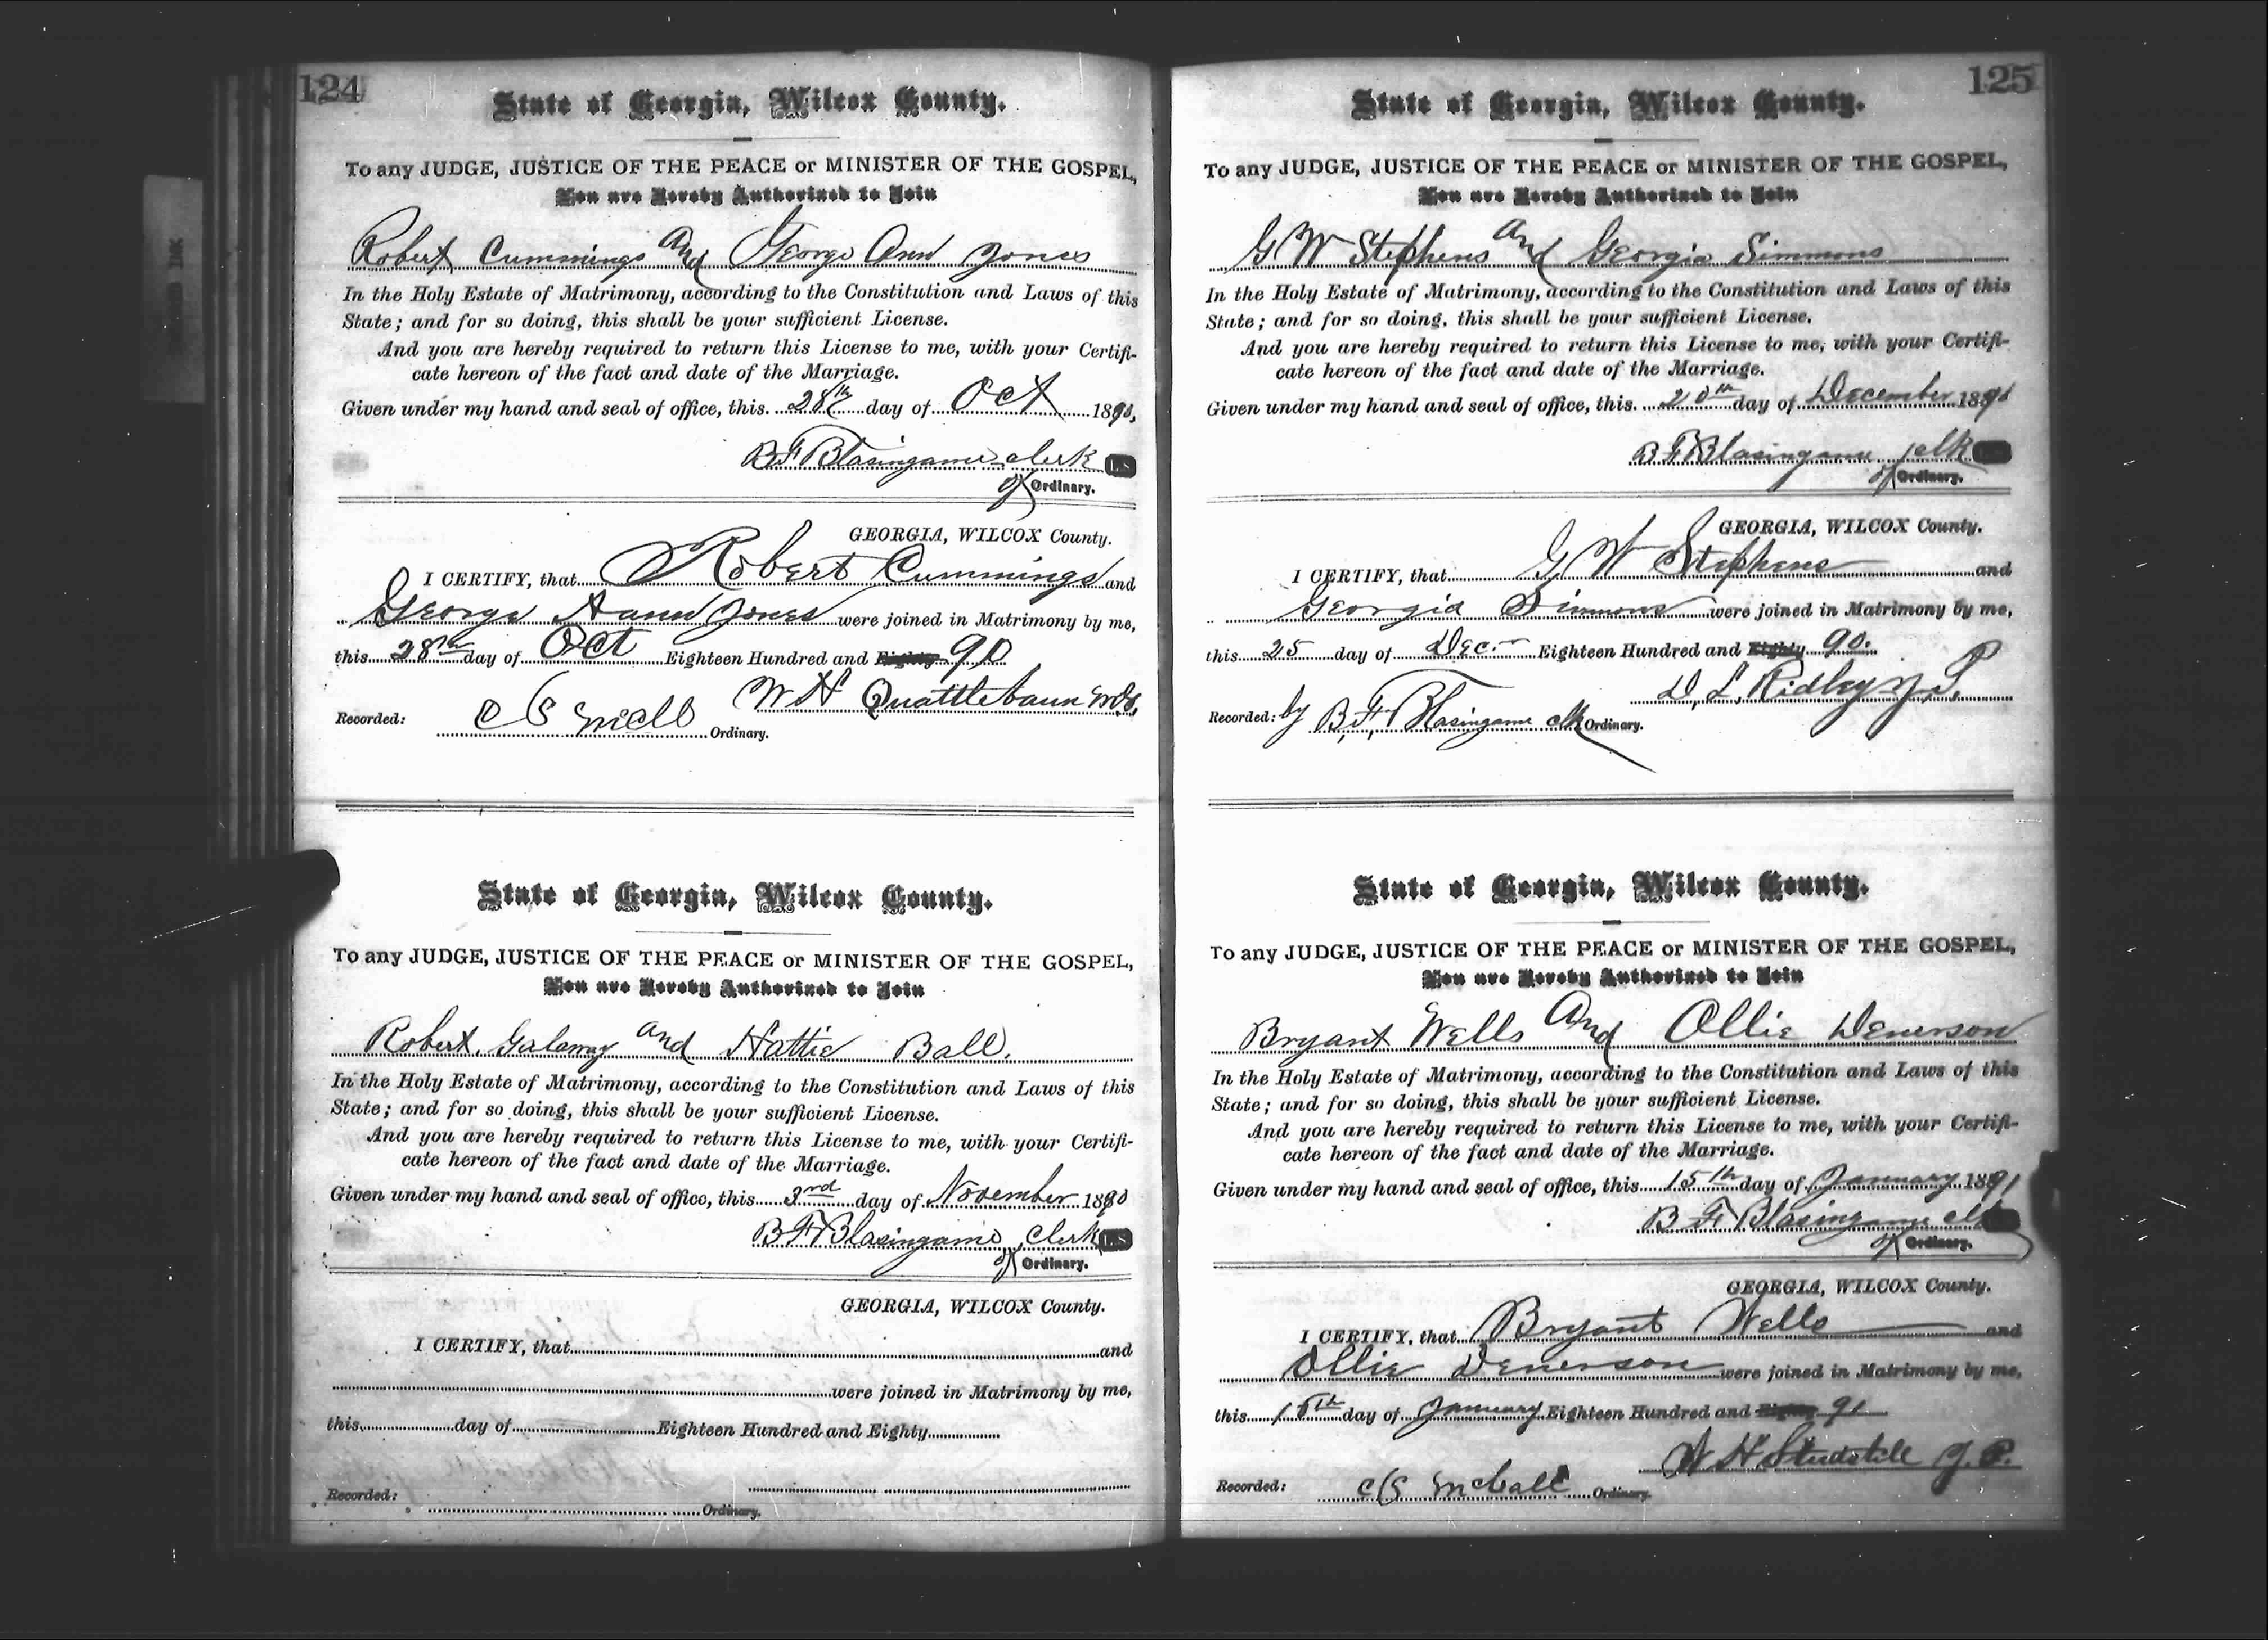 124
State of Georgia, Wilcox County.
To any JUDGE, JUSTICE OF THE PEACE or MINISTER OF THE GOSPEL,
You are Hereby Authorized to Join
Robert Cummings And George Ann Jones
In the Holy Estate of Matrimony, according to the Constitution and Laws of this
State; and for so doing, this shall be your sufficient License.
And you are hereby required to return this License to me, with your Certifi-
cate hereon of the fact and date of the Marriage.
Given under my hand and seal of office, this 28th day of Oct 1890,
B F Blasingame clerk LS
of Ordinary.
GEORGIA, WILCOX County.
I CERTIFY, that Robert Cummings and
George Aann Jones were joined in Matrimony by me,
this 28th day of Oct Eighteen Hundred and Eighty 90
W H Quattlebaum
Recorded: Ordinary.
State of Georgia, Wilcox County.
To any JUDGE, JUSTICE OF THE PEACE or MINISTER OF THE GOSPEL,
You are Hereby Authorized to Join
Robert and Hattie Ball.
In the Holy Estate of Matrimony, according to the Constitution and Laws of this
State; and for so doing, this shall be your sufficient License.
And you are hereby required to return this License to me, with your Certifi-
cate hereon of the fact and date of the Marriage.
Given under my hand and seal of office, this 3rd day of November 1890
B F Blasingame Clerk LS
of Ordinary.
GEORGIA, WILCOX County.
I CERTIFY, that and
were joined in Matrimony by me,
this day of Eighteen Hundred and Eighty
Recorded: Ordinary.
125
State of Georgia, Wilcox County.
To any JUDGE, JUSTICE OF THE PEACE or MINISTER OF THE GOSPEL,
You are Hereby Authorized to Join
G W Stephens And Georgia Simmons
In the Holy Estate of Matrimony, according to the Constitution and Laws of this
State; and for so doing, this shall be your sufficient License.
And you are hereby required to return this License to me, with your Certifi-
cate hereon of the fact and date of the Marriage.
Given under my hand and seal of office, this 20th day of December 1890
B F Blasingame clk
of Ordinary.
GEORGIA, WILCOX County.
I CERTIFY, that G W Stephens and
Georgia Simmons were joined in Matrimony by me,
this 25 day of Dec. Eighteen Hundred and Eighty 90.
D. L. Ridley
Recorded: by B. F. Blasingame clk Ordinary.
State of Georgia, Wilcox County.
To any JUDGE, JUSTICE OF THE PEACE or MINISTER OF THE GOSPEL,
You are Hereby Authorized to Join
Bryant Wells And Ollie Denerson
In the Holy Estate of Matrimony, according to the Constitution and Laws of this
State; and for so doing, this shall be your sufficient License.
And you are hereby required to return this License to me, with your Certifi-
cate hereon of the fact and date of the Marriage.
Given under my hand and seal of office, this 15th day of January 1891
B F Blasingame clk
of Ordinary.
GEORGIA, WILCOX County.
I CERTIFY, that Bryant Wells and
Ollie Denerson were joined in Matrimony by me,
this 15th day of January Eighteen Hundred and Eighty 91
W H Studstill J. P.
Recorded: C S McCall Ordinary.